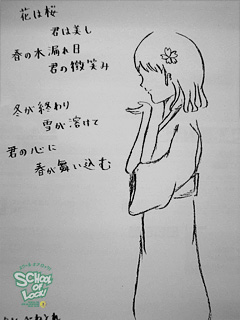 花は桜
君は美し
春の木漏れ日
君の微笑み
冬が終わり
雪が溶けて
君の心に
春が舞い込む
SCHOOL
OF
LOCK!